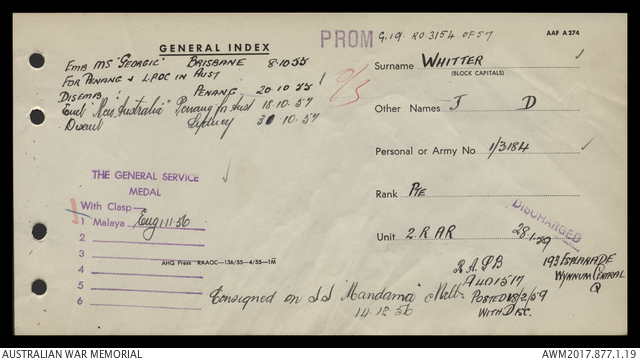 PROM G.19. RO.3154 OF 57
AAF A 274
GENERAL INDEX
EMB MS "GEORGIC" BRISBANE 8.10.55
FOR PENANG & LPOC IN AUST
DISEMB " PENANG 20.10.55
Emb "New Australia" Penang for Aust 18.10.57
Disemb Sydney 30.10.57
Surname WHITTER
(BLOCK CAPITALS)
Other Names J D
Personal or Army No 1/3184
Rank PTE
Unit 2 R AR 28.1.59
DISCHARGED
THE GENERAL SERVICE
MEDAL
With Clasp
1 Malaya Eng 1.11.56
2
3
4
5
6
AHQ Press RAAOC—136/55—4/55—1M
R.A.P.B
A401517
POSTED 18/2/59
WITH DISC.
193 ESPLANADE
WYNNUM CENTRAL
Q
Consigned on S.S "Mandama" Melb
14.12.56
AUSTRALIAN WAR MEMORIAL
AWM2017.877.1.19